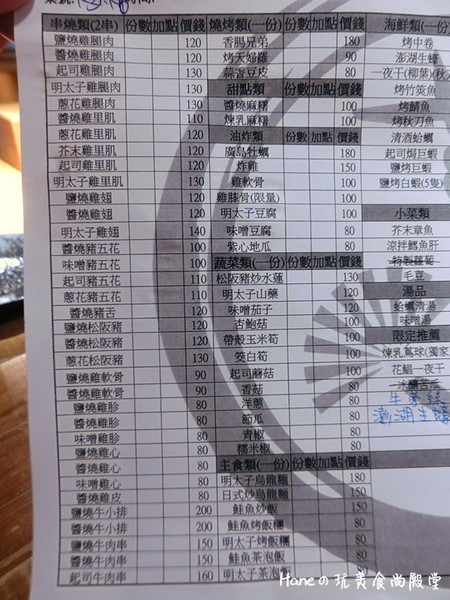 串燒類(2串) 份數 加點 價錢
鹽燒雞腿肉 120
醬燒雞腿肉 120
起司雞腿肉 130
明太子雞腿肉 120
蔥花雞腿肉 120
醬燒雞里肌 110
蔥花雞里肌 120
芥末雞里肌 120
起司雞里肌 120
明太子雞里肌 130
鹽燒雞翅 120
醬燒雞翅 120
明太子雞翅 140
鹽燒豬五花 100
醬燒豬五花 100
味噌豬五花 100
起司豬五花 110
蔥花豬五花 110
醬燒豬舌
鹽燒松阪豬 120
醬燒松阪豬 120
蔥花松阪豬 130
鹽燒雞軟骨 90
醬燒雞軟骨 90
鹽燒雞胗 80
醬燒雞胗 80
味噌雞胗 80
鹽燒雞心 80
醬燒雞心 80
味噌雞心 80
醬燒雞皮 80
鹽燒牛小排 200
醬燒牛小排 200
鹽燒牛肉串 150
醬燒牛肉串 150
起司牛肉串 160
燒烤類(一份) 份數 加點 價錢
香腸兄弟 180
烤天婦羅 90
蒜香豆皮 80
甜點類 份數 加點 價錢
醬燒麻糬 100
煉乳麻糬 100
油炸類 份數 加點 價錢
廣島牡蠣 180
炸雞 150
雞軟骨 100
雞膝骨(限量) 100
明太子豆腐 100
味噌豆腐 80
紫心地瓜 80
蔬菜類(一份) 份數 加點 價錢
松阪豬炒水蓮 130
明太子山藥 120
味噌茄子 120
杏鮑菇 100
帶殼玉米筍 100
筊白筍 100
起司蘑菇 100
香菇 80
洋蔥 80
節瓜 80
青椒 80
糯米椒 80
主食類(一份) 份數 加點 價錢
明太子烏龍麵 180
日式炒烏龍麵 150
鮭魚炒飯 150
鮭魚烤飯糰
明太子烤飯糰
鮭魚茶泡飯
明太子茶泡飯
海鮮類(一份)
烤中卷
澎湖生蠔
一夜干(柳葉)(秋刀
烤竹筴魚
烤鯖魚
烤秋刀魚
清酒蛤蠣
起司焗巨蝦
鹽烤巨蝦
鹽烤白蝦(5隻)
小菜類
芥末章魚
涼拌鱈魚肝
特製蘿蔔
毛豆
湯品
蛤蠣清湯
味噌湯
限定推薦
煉乳蔦球(獨家
花鯧一夜干
冰釀苦瓜
澎湖生蠔
Haneの玩美食尚殿堂